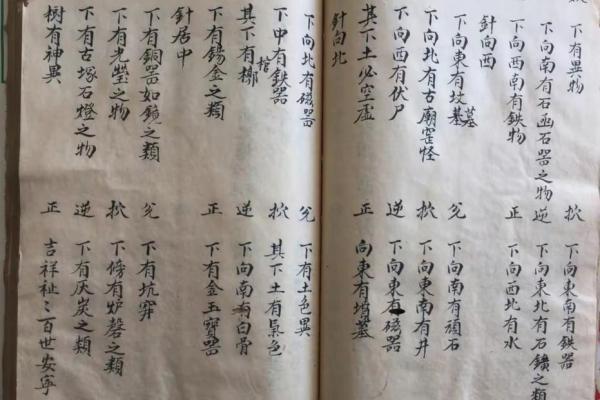 下有異物 扻 下東南有鉄器
下向南有石函石器之物 逆 下向東北有石鑛之類
下向西南有鉄物 正 下向西北有水
針向西
下向東有坟墓 兊 下向南有頑石
下向北有古廟窑怪 扻 下向東南有井
下向西有伏尸 逆 下向東有磁器
其下土必空虛 正 向東有墳墓
針向北
下向北有磁器 兊 下有土色異
下中有鉄器 扻 其下土有氣色
其下有棺槨 逆 下向南有白骨
下有錫金之類 正 下有金玉寶器
針居中
下有銅器如鏡之類 兊 下有坑穽
下有光瑩之物 扻 下傍有炉磬之類
下有古塚石燈之物 逆 下有灰炭之類
树有神異 正 吉祥祉〻百世安寧